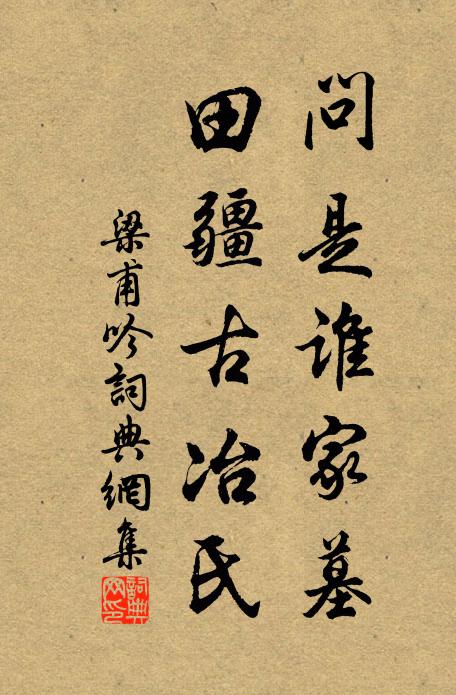 問是誰家墓
田疆古冶氏
梁甫吟詞典網集
詞典
网印